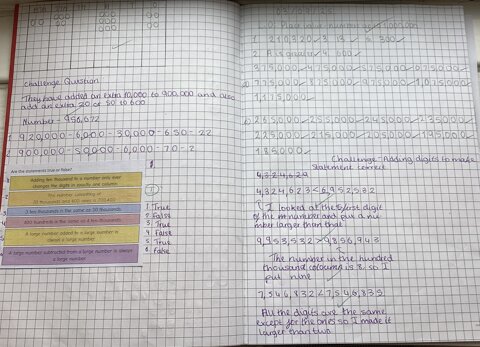 Challenge Question
They have added an extra 10,000 to 900,000 and also
add an extra 20 or 50 to 600
Number = 956,672
1. 920,000-6,000-30,000-650-22
2. 900,000-50,000-6,000-70-2
Are the statements true or false?
Adding ten thousand to a number only ever
changes the digits in exactly one column.
The number consisting of
0 tens thousand is the same as 20 thousands.
400 hundreds is the same as 4 ten thousands.
A large number added to a large number is
always a large number.
A large number subtracted from a large number is always
a large number.
1 True
2 False
3 True
4 False
5 True
6 False
1. 210,320
2. A is greater
375,000
475,000
575,000
675,000
775,000
875,000
975,000
1,075,000
1,175,000
b) 265,000
255,000
245,000
235,000
225,000
215,000
205,000
195,000
185,000
Challenge - Adding digits to make
statement correct
4,324,629
4,324,623 < 6,952,582
I looked at the first digit
of the number and put a nu
mber larger than that
9,953,532 > 9,856,943
The number in the hundred
thousand coloumn is 8. so I
put nine
7,546,832 < 7,546,835
All the digits are the same
except for the ones so I made it
larger than two